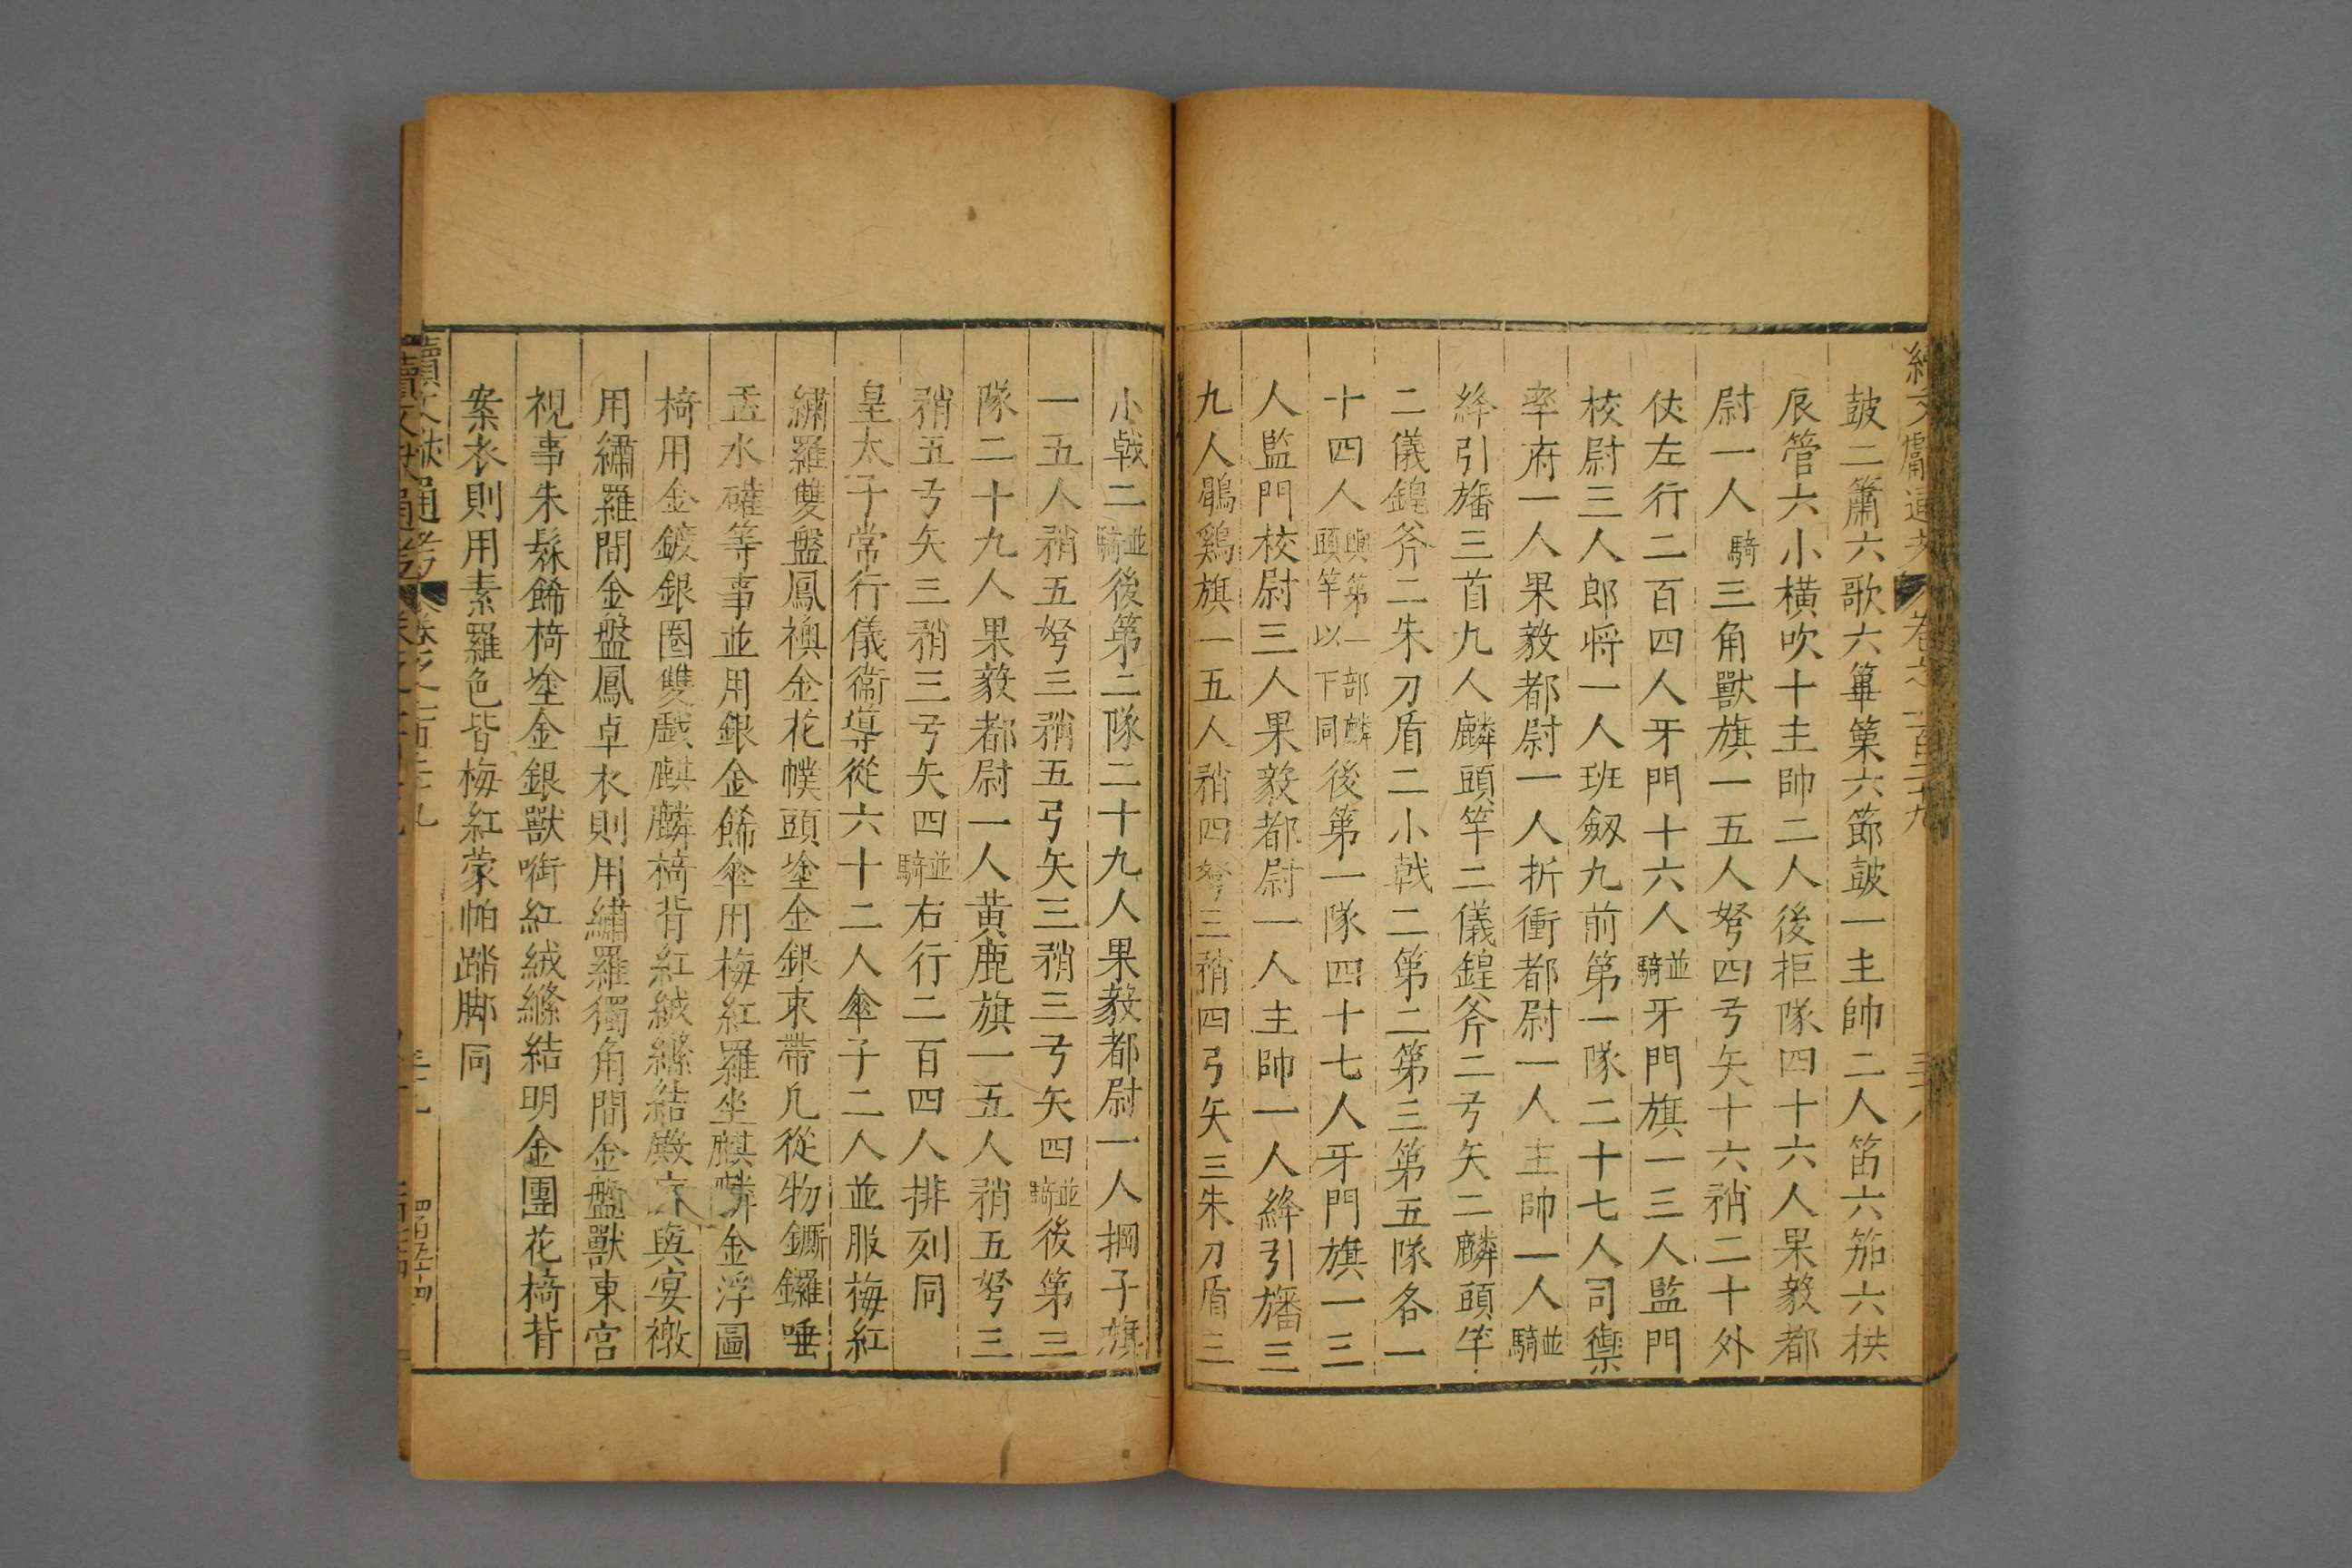 鼓二簫六歌六篳篥六節鼓一主帥二人笛六笳六栱
辰管六小橫吹十主帥二人後拒隊四十六人果毅都
尉一人騎三角獸旗一五人弩四弓矢十六矟二十外
仗左行二百四人牙門十六人並騎牙門旗一三人監門
校尉三人郎将一人班劔九前第一隊二十七人司禦
率府一人果毅都尉一人折衝都尉一人主帥一人並騎
絳引旛三首九人麟頭竿二儀鍠斧二弓矢二麟頭竿
二儀鍠斧二朱刀盾二小戟二第二第三第五隊各一
十四人與第一部麟頭竿以下同後第一隊四十七人牙門旗一三
人監門校尉三人果毅都尉一人主帥一人絳引旛三
九人鶡鷄旗一五人矟四弩三矟四弓矢三朱刀盾三
小戟二並騎後第二隊二十九人果毅都尉一人搁子旗
一五人矟五弩三矟五弓矢三矟三弓矢四並騎後第三
隊二十九人果毅都尉一人黃鹿旗一五人矟五弩三
矟五弓矢三矟三弓矢四並騎右行二百四人排列同
皇太子常行儀衞導從六十二人傘子二人並服梅紅
繡羅雙盤鳳襖金花幞頭塗金銀束帶凡從物鐁鑼唾
盂水礶等事並用銀金餙傘用梅紅羅坐麒麟金浮圖
椅用金鍍銀圈雙戲麒麟椅背紅絨縧結殿庭與宴襒
用繡羅間金盤鳳卓衣則用繡羅獨角間金盤獸東宮
視事朱髹餙椅塗金銀獸啣紅絨縧結明金團花椅背
案衣則用素羅色皆梅紅蒙帕踏脚同